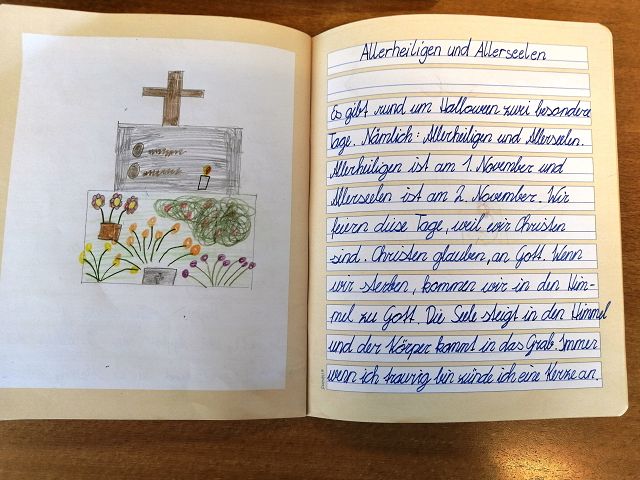 Allerheiligen und Allerseelen
Es gibt rund um Halloween zwei besondere
Tage. Nämlich: Allerheiligen und Allerseelen.
Allerheiligen ist am 1. November und
Allerseelen ist am 2. November. Wir
feiern diese Tage, weil wir Christen
sind. Christen glauben, an Gott. Wenn
wir sterben, kommen wir in den Him-
mel zu Gott. Die Seele steigt in den Himmel
und der Körper kommt in das Grab. Immer
wenn ich traurig bin zünde ich eine Kerze an.